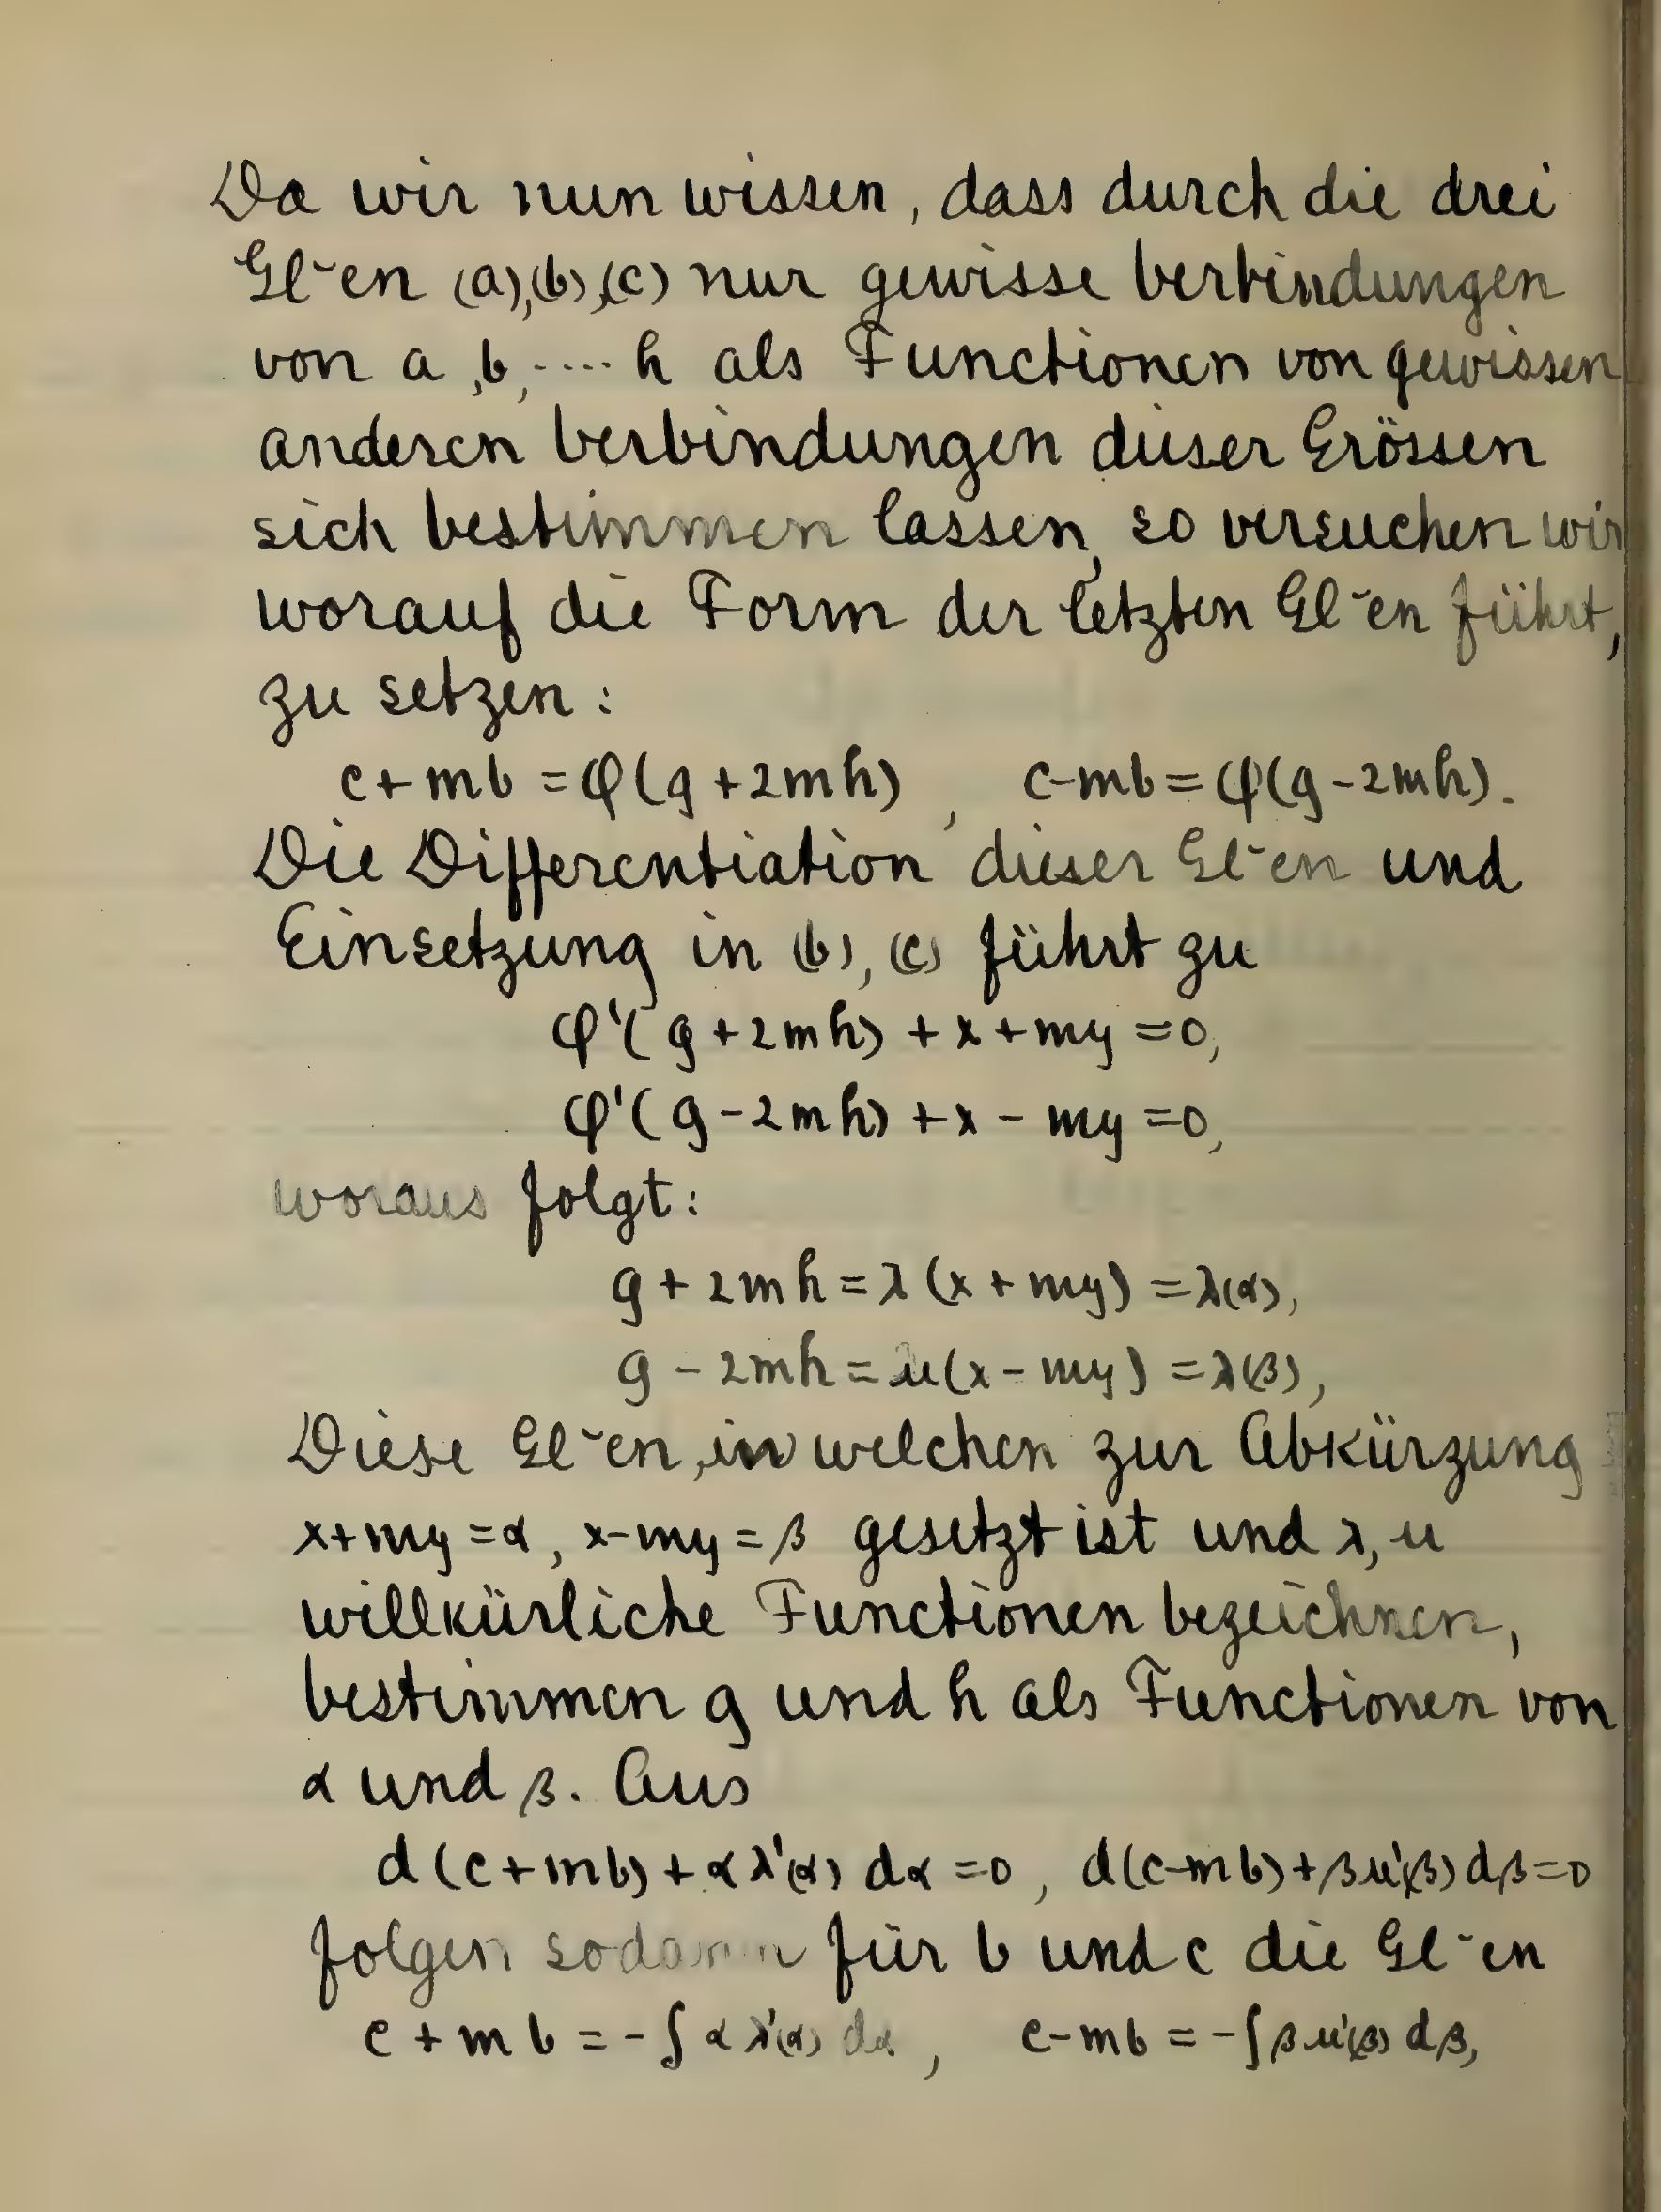 Da wir nun wissen, dass durch die drei
Gl~en (a),(b),(c) nur gewisse Verbindungen
von a, b, .... h als Functionen von gewissen
anderen Verbindungen dieser Grössen
sich bestimmen lassen, so versuchen wir
worauf die Form der letzten Gl~en führt,
zu setzen:
c+mb = φ(g+2mh) , c-mb = φ(g-2mh).
Die Differentiation dieser Gl~en und
Einsetzung in (b), (c) führt zu
φ'(g+2mh) + x + my = 0,
φ'(g-2mh) + x - my = 0,
woraus folgt:
g + 2mh = λ(x+my) = λ(α),
g - 2mh = μ(x-my) = λ(β),
Diese Gl~en, in welchen zur Abkürzung
x+my = α, x-my = β gesetzt ist und λ, μ
willkürliche Functionen bezeichnen,
bestimmen g und h als Functionen von
α und β. Aus
d(c+mb) + αλ'(α) dα = 0, d(c-mb) + βμ'(β) dβ = 0
folgen sodann für b und c die Gl~en
c + mb = -∫ α λ'(α) dα , c-mb = -∫ β μ'(β) dβ,